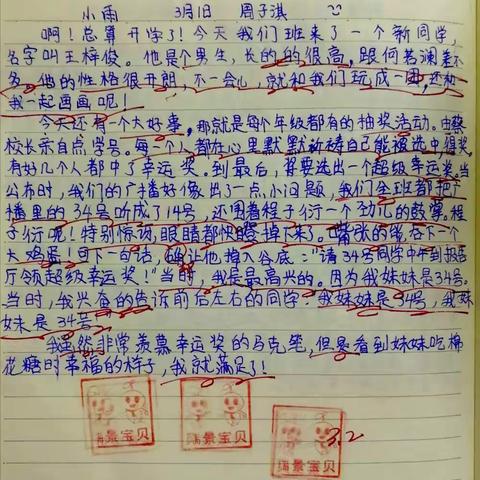 小雨 3月1日 周子淇
啊！总算开学了！今天我们班来了一个新同学，
名字叫王梓俊。他是个男生，长的的很高，跟何若澜差不
多，他的性格很开朗，不一会儿，就和我们玩成一团，还和
我一起画画呢！
今天还有一个大好事，那就是每个年级都有的抽奖活动。由蔡
校长亲自点学号。每一个人都在心里默默祈祷自己能被选中，得奖
有好几个人都中了幸运奖。到最后，将要选出一个超级幸运奖。当
公布时，我们的广播好像出了一点小问题，我们全班都把广
播里的34号听成了14号，还围着程子衍一个劲儿的鼓掌。程
子衍呢！特别惊讶，眼睛都快掉下来了。嘴张的能吞下一个
大鸡蛋！可下一句话，让他掉入谷底："请34号同学中午到报告
厅领超级幸运奖！"当时，我是最高兴的。因为我妹妹是34号。
当时，我兴奋的告诉前后左右的同学："我妹妹是34号，我妹
妹是34号。
我虽然非常羡慕幸运奖的马克笔，但是看到妹妹吃棉
花糖时幸福的样子，我就满足了！
景宝贝
景宝贝
景宝贝
3.2